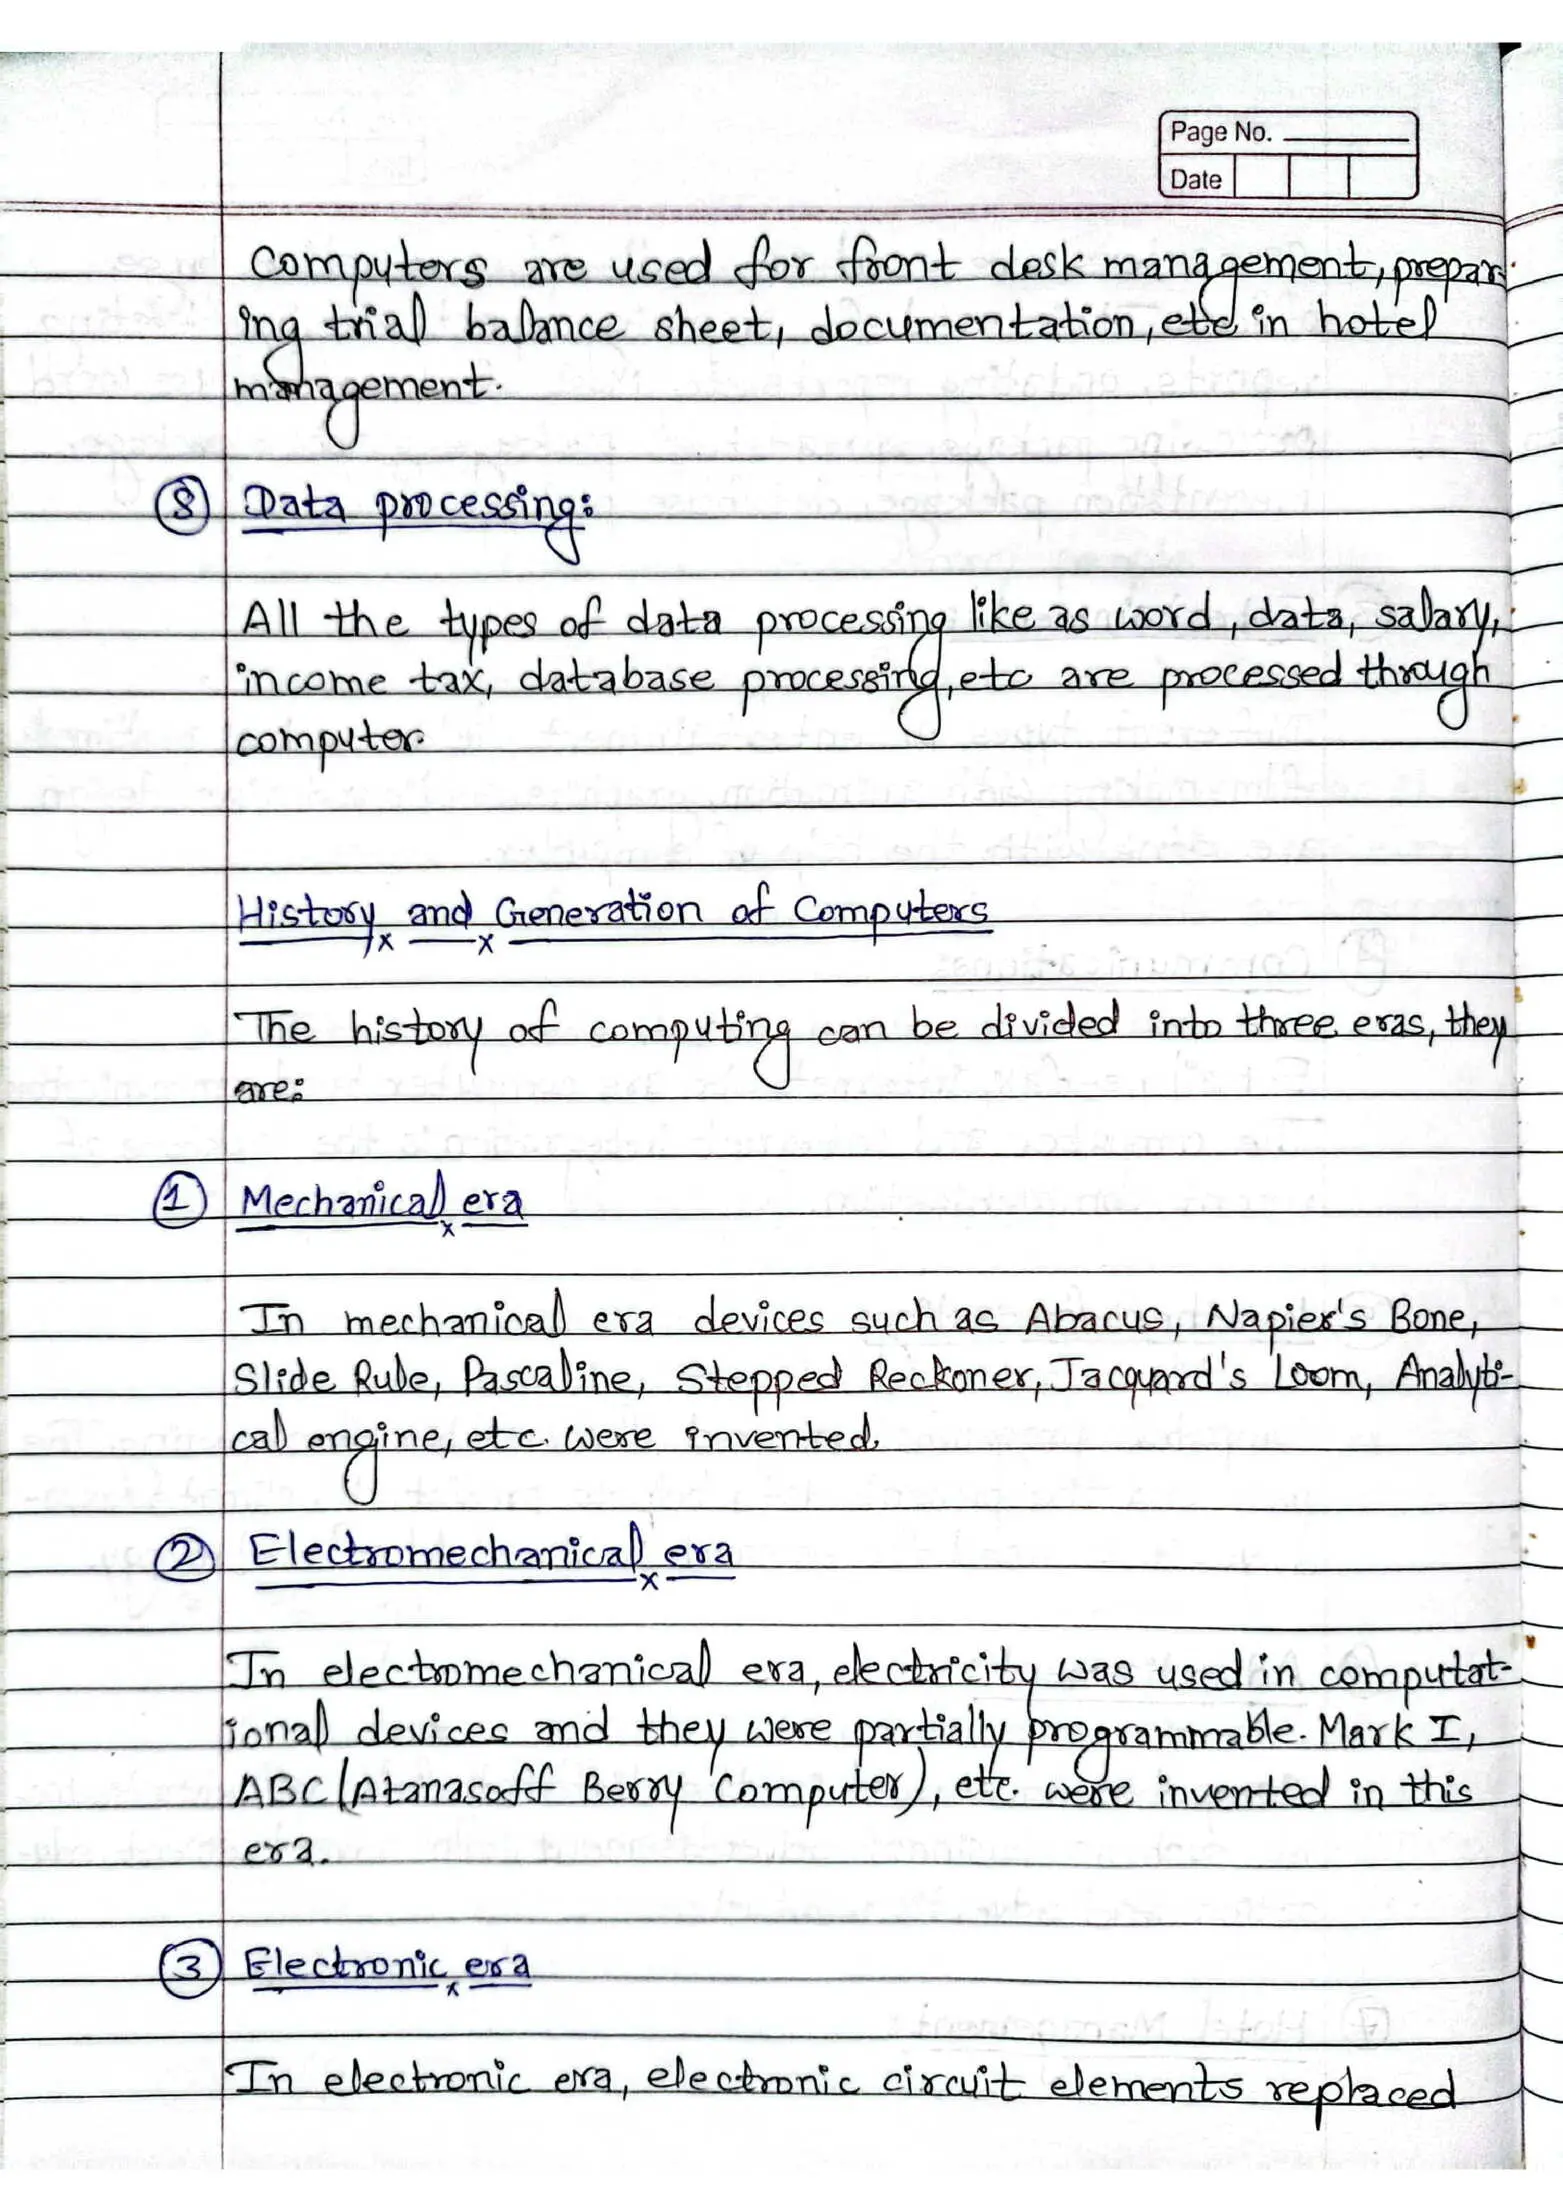 Page No.
Date
Computers are used for front desk management, prepar-
ing trial balance sheet, documentation, etc in hotel
management.
8 Data processing:
All the types of data processing like as word, data, salary,
income tax, database processing, etc are processed through
computer.
History and Generation of Computers
The history of computing can be divided into three eras, they
are:
1 Mechanical era
In mechanical era devices such as Abacus, Napier's Bone,
Slide Rule, Pascaline, Stepped Reckoner, Jacquard's Loom, Analyti-
cal engine, etc. were invented.
2 Electromechanical era
In electromechanical era, electricity was used in computat-
ional devices and they were partially programmable. Mark I,
ABC (Atanasoff Berry Computer), etc. were invented in this
era.
3 Electronic era
In electronic era, electronic circuit elements replaced